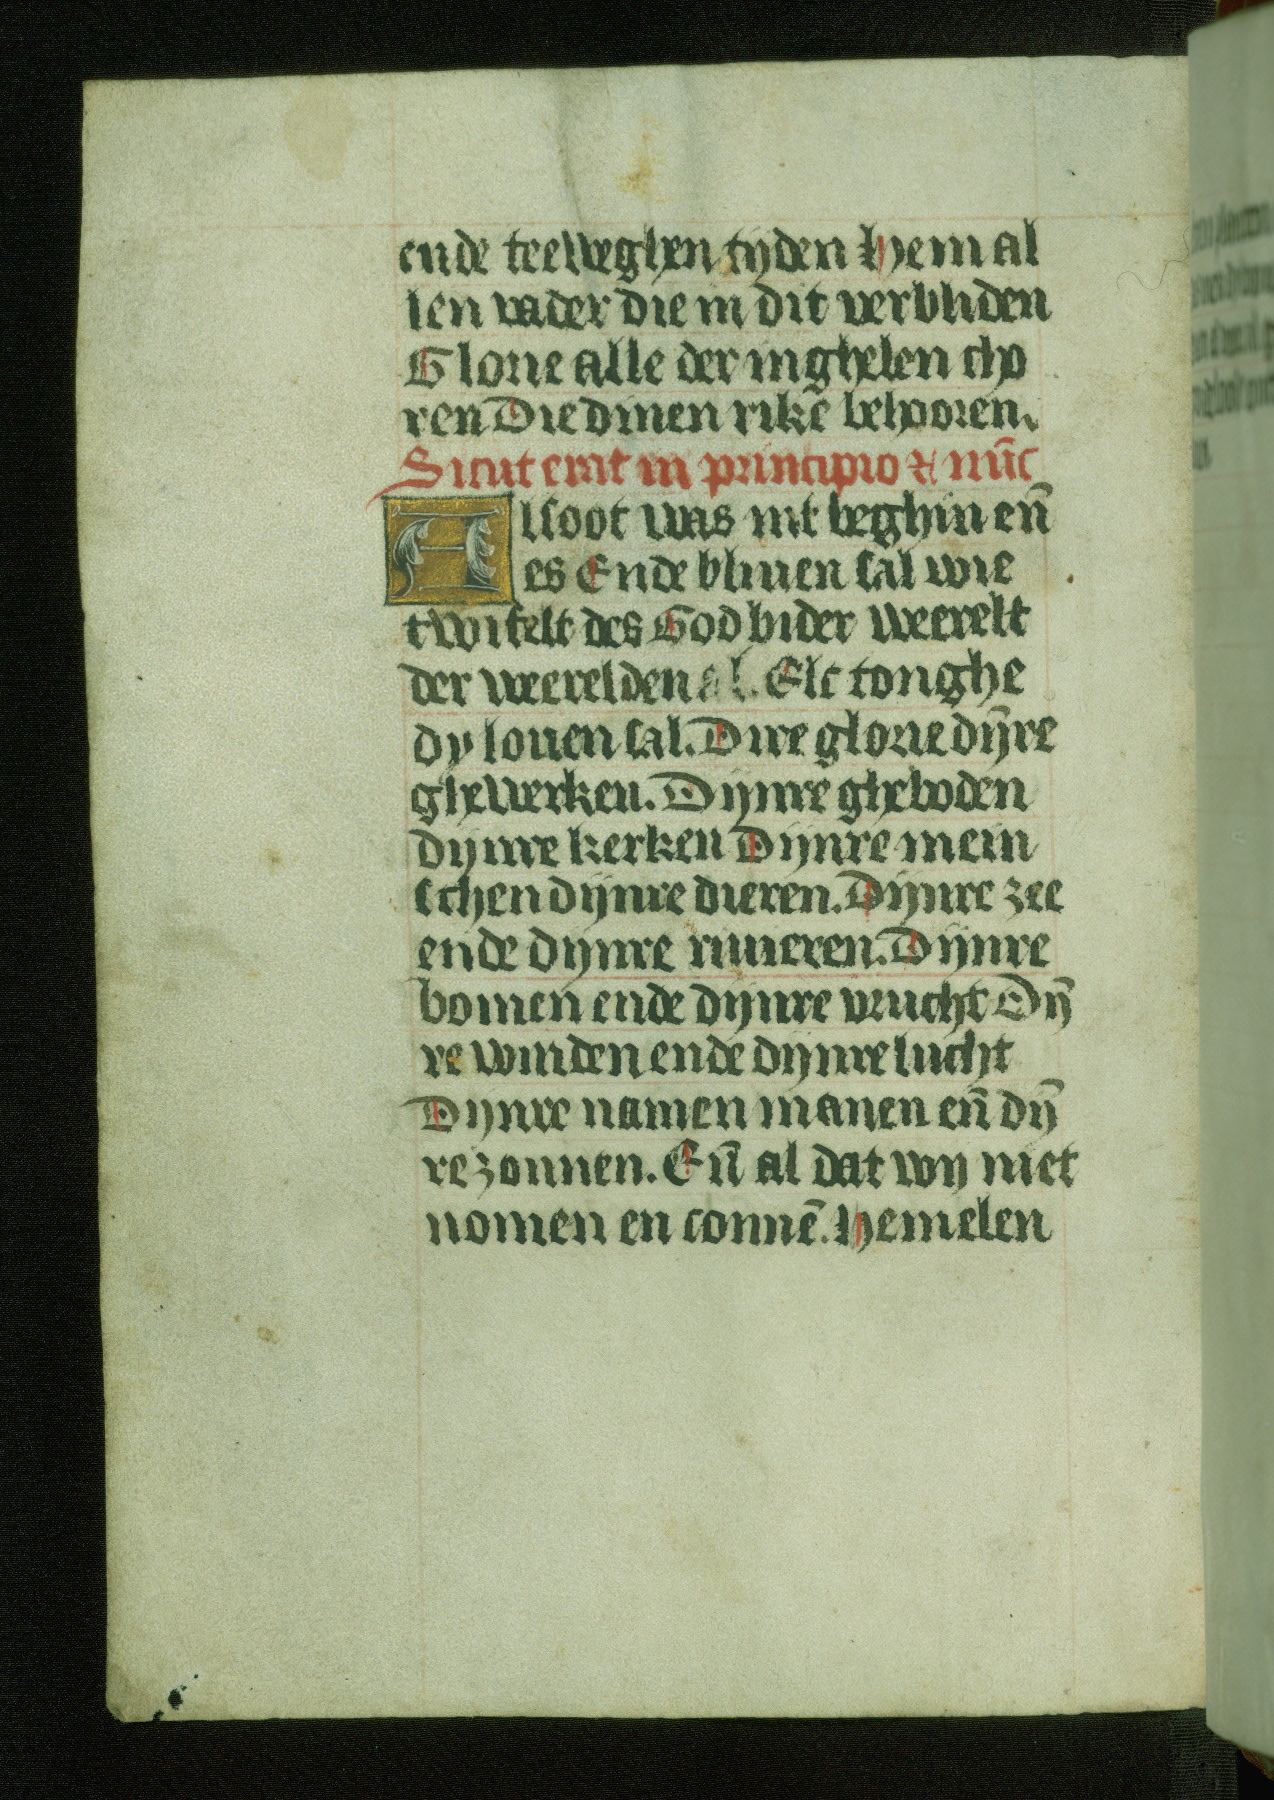 ende teeweghen tyden Hem al
len vader die in dit verbliden
Glorie alle der inghelen cho
ren Die dinen rikē behooren.
Sicut erat in principio ⁊ nūc
Alsoot was int beghin en̄
es Ende bliuen sal wie
twifelt des God bider weerelt
der weerelden al. Elc tonghe
dy louen sal. Dire glorie dȳre
ghewerken. Dijnre gheboden
dijnre kerken Dijnre mein
schen dijnre dieren. Dijnre zee
ende dijnre riuieren. Dijnre
bomen ende dijnre vrucht Dȳ
re winden ende dijnre lucht
Dijnre namen manen en̄ dȳ
re zonnen. En̄ al dat wij niet
nomen en connē. Hemelen